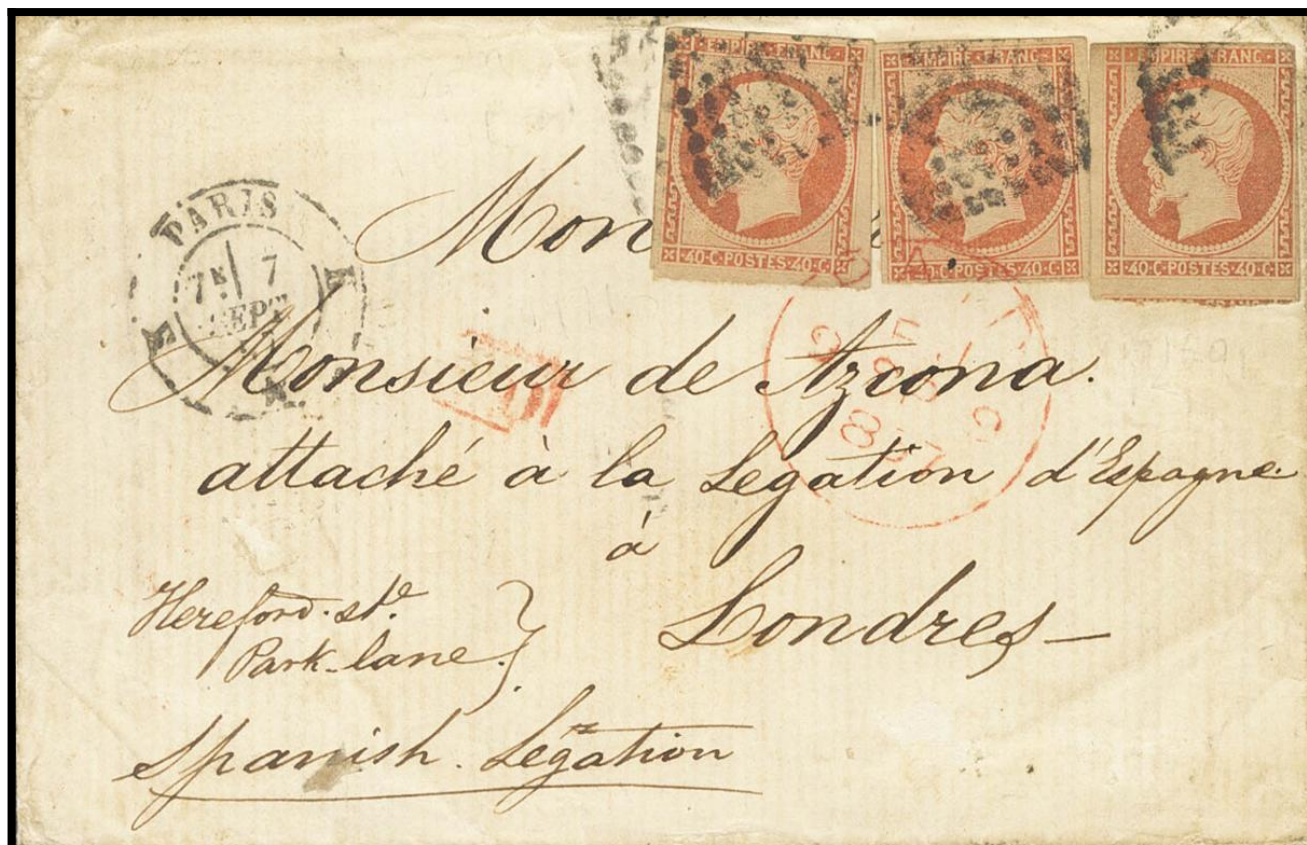 EMPIRE · FRANC · EMPIRE · FRANC · EMPIRE · FRANC ·
40 · C · POSTES · 40 · C 40 · C · POSTES · 40 · C · 40 · C · POSTES · 40 · C ·
PARIS
7
SEPT
Mon
Monsieur de Azcona.
attaché à la Legation d'Espagne
à
Londres
Hereford. st.
Park-lane
Spanish. Légation